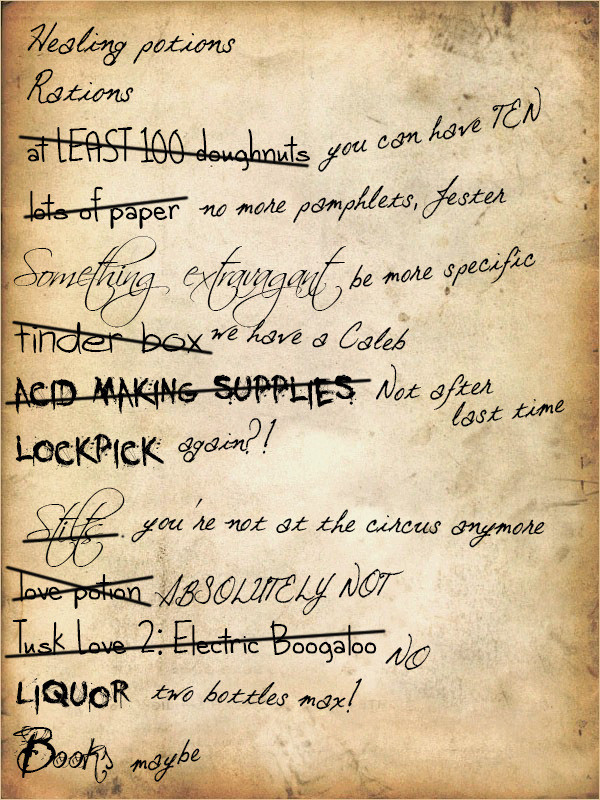 Healing potions
Rations
at LEAST 100 doughnuts you can have TEN
lots of paper no more pamphlets, Jester
Something extravagant be more specific
Tinder box we have a Caleb
ACID MAKING SUPPLIES Not after
last time
LOCKPICK again?!
Stilts you're not at the circus anymore
love potion ABSOLUTELY NOT
Tusk Love 2: Electric Boogaloo NO
LIQUOR two bottles max!
Books maybe